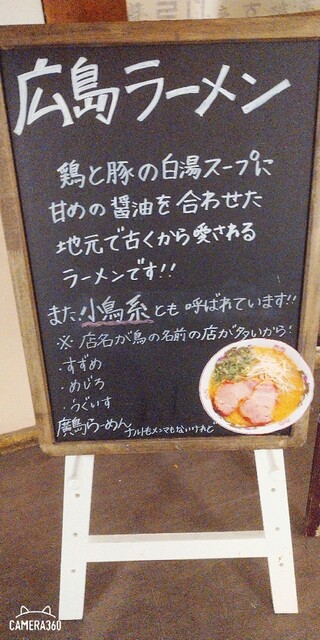 広島ラーメン
鶏と豚の白湯スープに
甘めの醤油を合わせた
地元で古くから愛される
ラーメンです!!
また小鳥系とも呼ばれています!!
※店名が鳥の名前の店が多いから!
・すずめ
・めじろ
・うぐいす
廣島らーめん ナルトもメンマもないけれど
CAMERA360